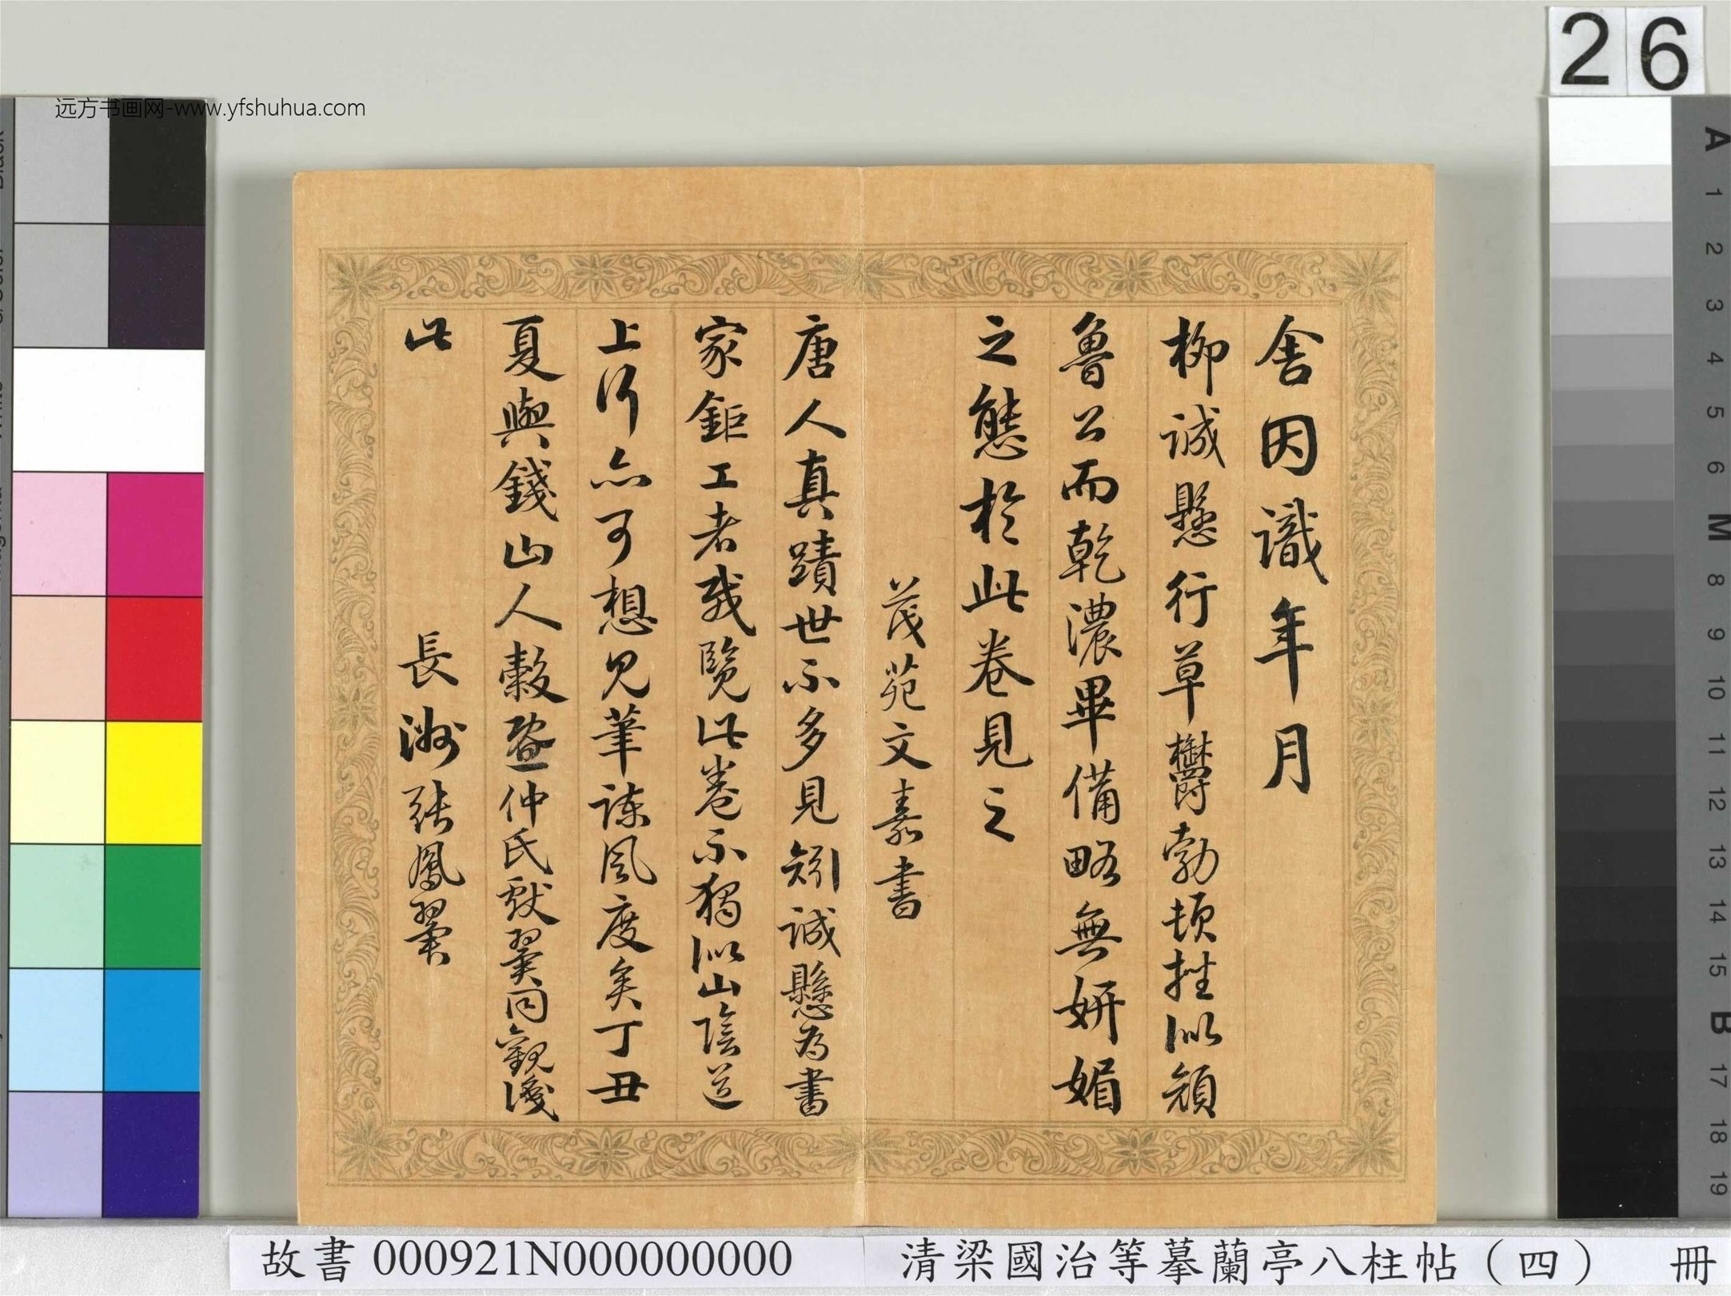 26
远方书画网-www.yfshuhua.com
舍因識年月
柳誠懸行草欝勃頓挫似顏
魯公而乾濃畢備略無妍媚
之態於此卷見之
茂苑文嘉書
唐人真蹟世不多見矧誠懸為書
家鉅工者哉覽此卷不獨似山陰道
上行亦可想見筆諫風度矣丁丑
夏與錢山人穀 仲氏獻翼同觀識
此
長洲張鳳翼
故書 000921N000000000
清梁國治等摹蘭亭八柱帖（四） 冊
A
1
2
3
4
5
6
M
8
9
10
11
12
13
14
15
B
17
18
19